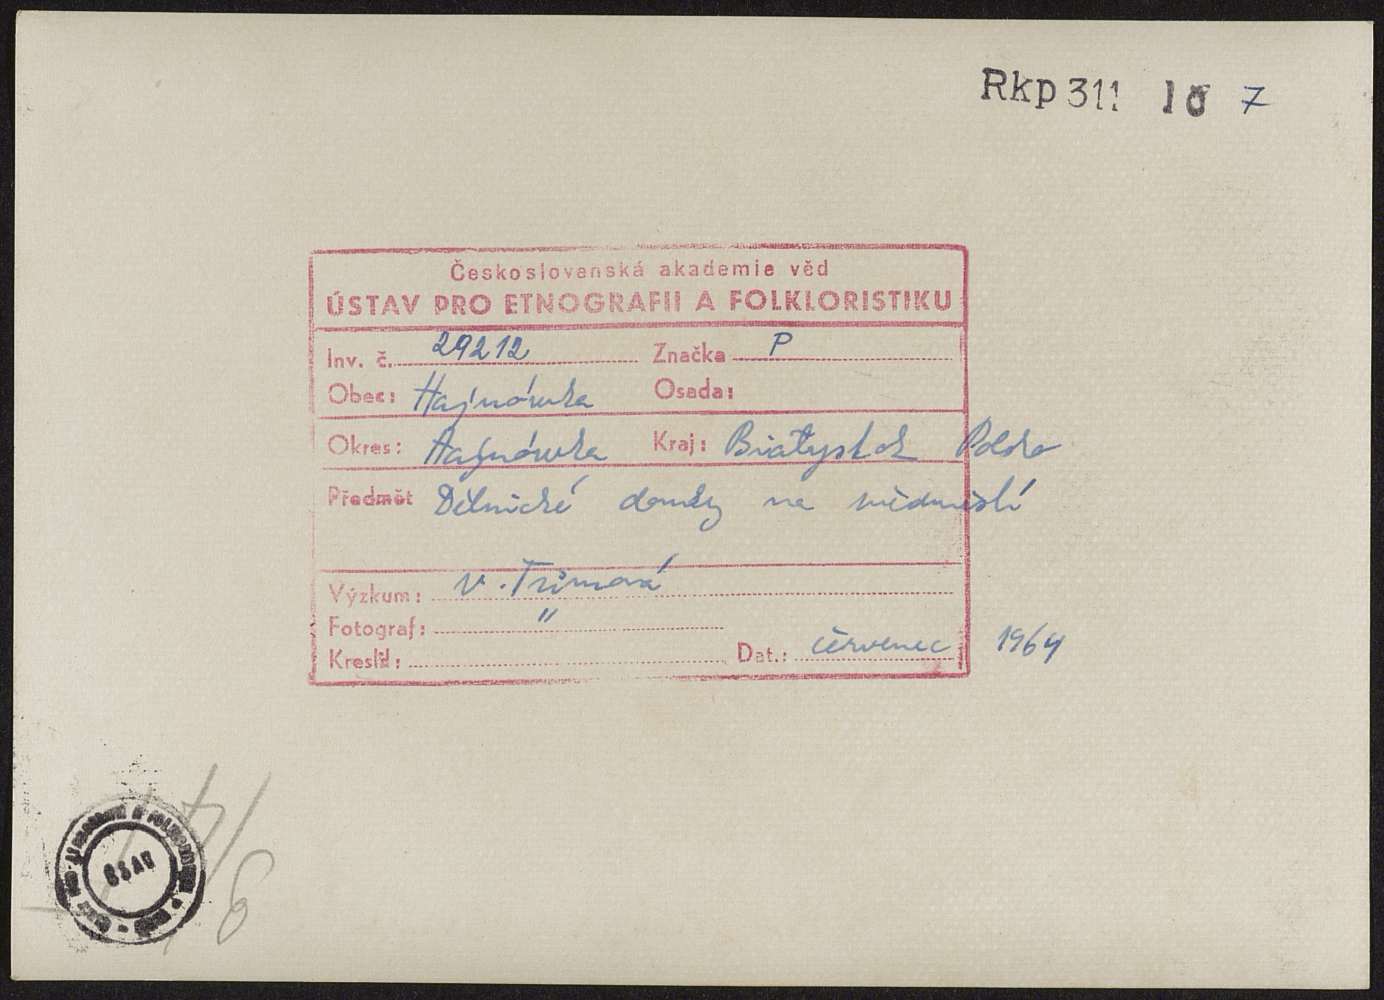 Rkp 311 10 7
Československá akademie věd
ÚSTAV PRO ETNOGRAFII A FOLKLORISTIKU
Inv. č. 29212 Značka P
Obec: Hajnówka Osada:
Okres: Hajnówka Kraj: Białystok Polsko
Předmět Dělnické domky na předměstí
Výzkum: V. Trnková
Fotograf: "
Kreslil:
Dat.: červenec 1964
ČSAV